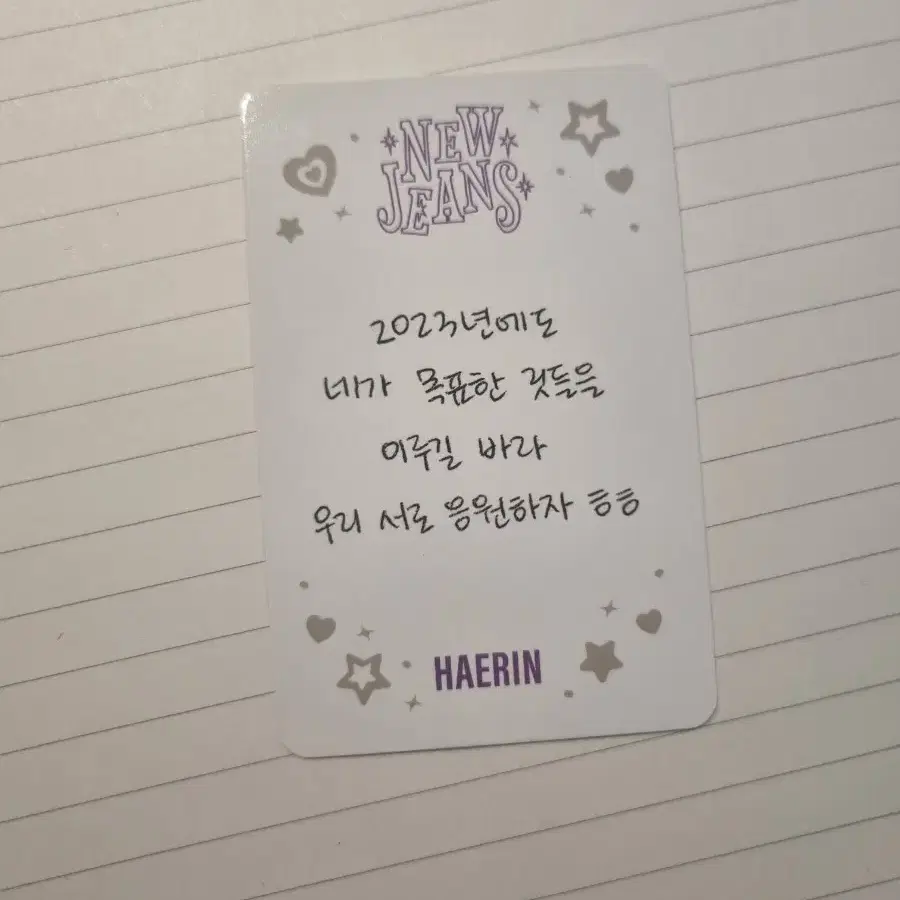 NEW
JEANS
2023년에도
네가 목표한 것들을
이루길 바라
우리 서로 응원하자 ㅎㅎ
HAERIN